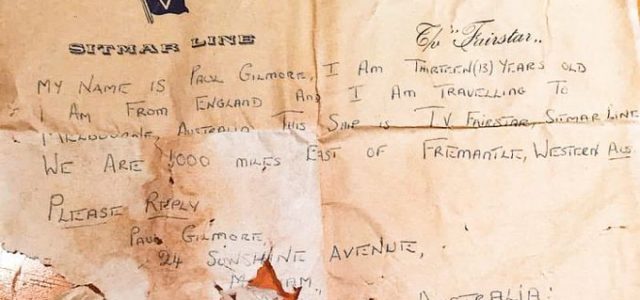 V
SITMAR LINE T/v "Fairstar..
MY NAME IS PAUL GILMORE, I AM THIRTEEN (13) YEARS OLD
I AM FROM ENGLAND AND I AM TRAVELLING TO
MELBOURNE, AUSTRALIA THIS SHIP IS TV FAIRSTAR, SITMAR LINE
WE ARE 1000 MILES EAST OF FREMANTLE, WESTERN AUS
PLEASE REPLY
PAUL GILMORE,
24 SUNSHINE AVENUE,
AUSTRALIA: